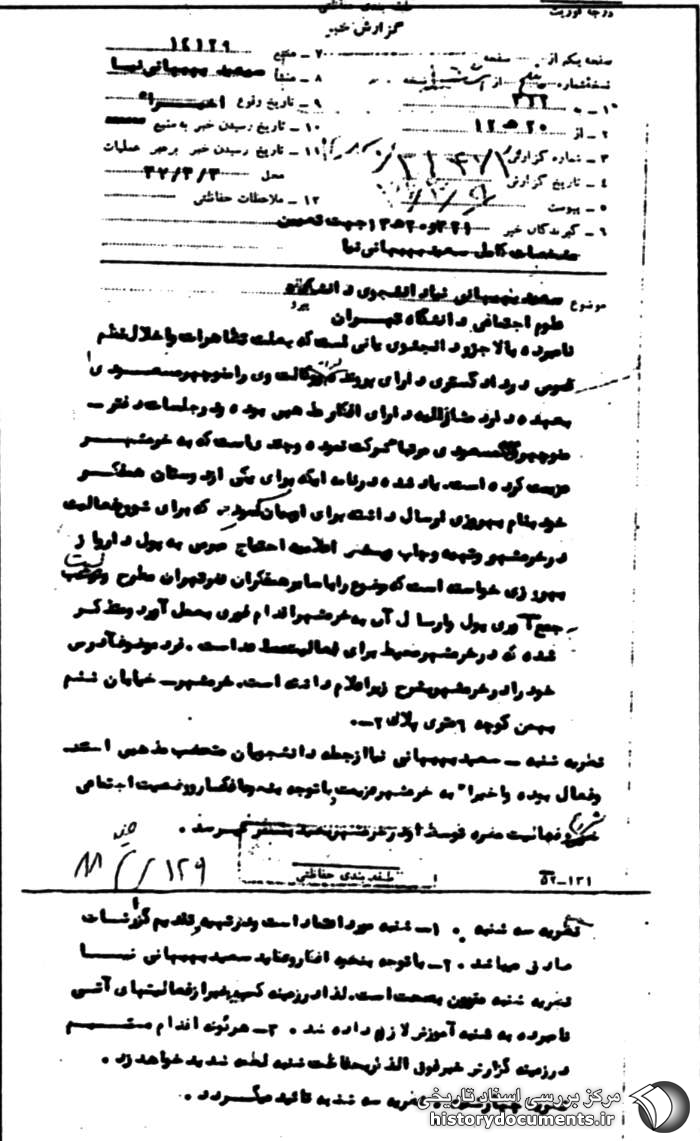 درجه فوریت
طبقه بندی حفاظتی
گزارش خبر
صفحه یکم از صفحه
نسخه شماره از نسخه
۱ – به ۳۱۲
۲ – از ۲۰ ه ۱۲
۳ – شماره گزارش
۴ – تاریخ گزارش
۵ – پیوست
۶ – گیرندگان خبر ۳۲۱ و ۲۰ ه ۱۲ جهت تعیین
مشخصات کامل سعید بهبهانی نیا
۷ – منبع ۱۴۱۲۹
۸ – منشأ سعید بهبهانی نیا
۹ – تاریخ وقوع اخیرا"
۱۰ – تاریخ رسیدن خبر به منبع
۱۱ – تاریخ رسیدن خبر برهبر عملیات
محل ۳۷/۳/۳
۱۲ – ملاحظات حفاظتی
موضوع سعید بهبهانی نیا دانشجوی دانشکده
علوم اجتماعی دانشگاه تهران
نامبرده بالا جزو دانشجویانی است که بعلت تظاهرات واخلال نظم
عمومی در دادگستری دارای پرونده بوده وکالت وی را منوچهر مسعودی
بعهده دارد مشارالیه دارای افکار مذهبی بوده ودر جلسات دفتر –
منوچهر مسعودی مرتبا شرکت نموده و چندی است که به خرمشهر
عزیمت کرده است. یاد شده در نامه ایکه برای یکی از دوستان همفکر
خود بنام بهروزی ارسال داشته برای او بیان نموده که برای شروع فعالیت
در خرمشهر وتهیه وچاپ و پخش اعلامیه احتیاج مبرمی به پول دارد و از
بهروزی خواسته است که موضوع را با سایر همفکران در تهران مطرح و نسبت
جمع آوری پول وارسال آن به خرمشهر اقدام فوری بعمل آورد ومتذکر
شده که در خرمشهر محیط برای فعالیت مساعد است. فرد موضوع آدرس
خود را در خرمشهر بشرح زیر اعلام داشته است. خرمشهر – خیابان ششم
بهمن کوچه ۶ متری پلاک ۲ –.
نظریه شنبه – سعید بهبهانی نیا از جمله دانشجویان متعصب مذهبی است
وفعال بوده واخیرا" به خرمشهر عزیمت و با توجه به نحوه افکار و وضعیت اجتماعی
شروع فعالیت مضره توسط او در خرمشهر بعید بنظر نمیرسد.
۱۲۹
طبقه بندی حفاظتی
۱۳۱–۵۲
نظریه سه شنبه . ۱– شنبه مورد اعتماد است ودر تهیه و تقدیم گزارشات
صادق میباشد . ۲– با توجه بنحوه افکار وعقاید سعید بهبهانی نیا
نظریه شنبه مقرون بصحت است. لذا در زمینه کسب خبر از فعالیتهای آتی
نامبرده به شنبه آموزش لازم داده شد . ۳– هرگونه اقدام مستقیم
در زمینه گزارش خبر فوق الذکر بحفاظت شنبه لطمه شدید خواهد زد .
نظریه سه شنبه تائید میگردد .
مرکز بررسی اسناد تاریخی
historydocuments.ir